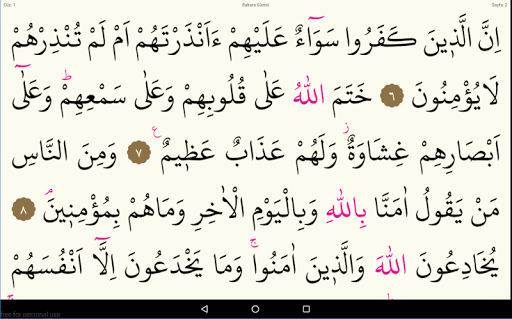 Cüz: 1 Bakara Sûresi Sayfa: 2
اِنَّ الَّذ۪ينَ كَفَرُوا سَوَٓاءٌ عَلَيْهِمْ ءَاَنْذَرْتَهُمْ اَمْ لَمْ تُنْذِرْهُمْ
لَا يُؤْمِنُونَ ﴿٦﴾ خَتَمَ اللّٰهُ عَلٰى قُلُوبِهِمْ وَعَلٰى سَمْعِهِمْۜ وَعَلٰٓى
اَبْصَارِهِمْ غِشَاوَةٌۘ وَلَهُمْ عَذَابٌ عَظ۪يمٌ۟ ﴿٧﴾ وَمِنَ النَّاسِ
مَنْ يَقُولُ اٰمَنَّا بِاللّٰهِ وَبِالْيَوْمِ الْاٰخِرِ وَمَا هُمْ بِمُؤْمِن۪ينَۢ ﴿٨﴾
يُخَادِعُونَ اللّٰهَ وَالَّذ۪ينَ اٰمَنُواۚ وَمَا يَخْدَعُونَ اِلَّٓا اَنْفُسَهُمْ
free for personal use